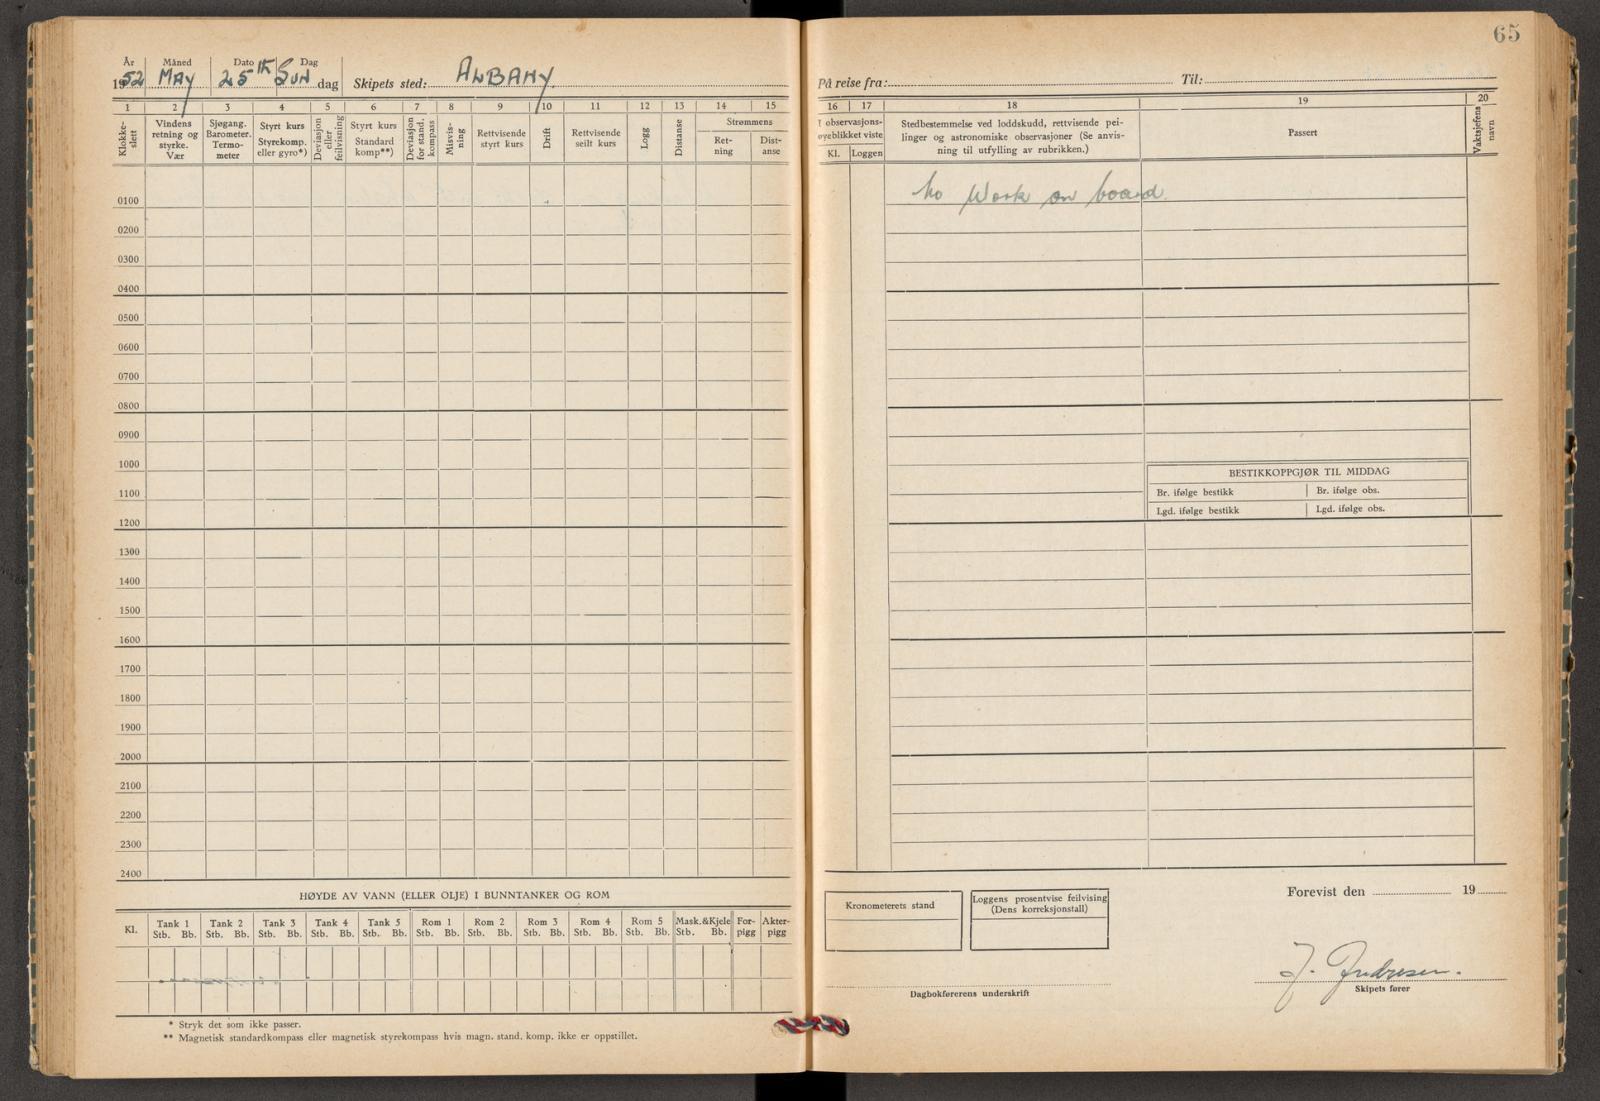 65
År Måned Dato Dag
1952 MAY 25th SUN dag Skipets sted: ALBANY.
På reise fra: Til:
1 2 3 4 5 6 7 8 9 10 11 12 13 14 15
16 17 18 19 20
Klokke-slett
Vindens retning og styrke. Vær
Sjøgang. Barometer. Termo-meter
Styrt kurs Styrekomp. eller gyro*)
Deviasjon eller feilvisning
Styrt kurs Standard komp**)
Deviasjon for stand. kompass
Misvis-ning
Rettvisende styrt kurs
Drift
Rettvisende seilt kurs
Logg
Distanse
Strømmens
Ret-ning
Dist-anse
I observasjons-
øyeblikket viste
Kl. Loggen
Stedbestemmelse ved loddskudd, rettvisende pei-
linger og astronomiske observasjoner (Se anvis-
ning til utfylling av rubrikken.)
Passert
Vaktsjefens navn
No Work on board.
0100
0200
0300
0400
0500
0600
0700
0800
0900
1000
1100
1200
1300
1400
1500
1600
1700
1800
1900
2000
2100
2200
2300
2400
BESTIKKOPPGJØR TIL MIDDAG
Br. ifølge bestikk Br. ifølge obs.
Lgd. ifølge bestikk Lgd. ifølge obs.
HØYDE AV VANN (ELLER OLJE) I BUNNTANKER OG ROM
Kl.
Tank 1 Tank 2 Tank 3 Tank 4 Tank 5 Rom 1 Rom 2 Rom 3 Rom 4 Rom 5 Mask.&Kjele For-pigg Akter-pigg
Stb. Bb. Stb. Bb. Stb. Bb. Stb. Bb. Stb. Bb. Stb. Bb. Stb. Bb. Stb. Bb. Stb. Bb. Stb. Bb. Stb. Bb.
* Stryk det som ikke passer.
** Magnetisk standardkompass eller magnetisk styrekompass hvis magn. stand. komp. ikke er oppstillet.
Kronometerets stand
Loggens prosentvise feilvising
(Dens korreksjonstall)
Forevist den 19
Dagbokførerens underskrift
Skipets fører